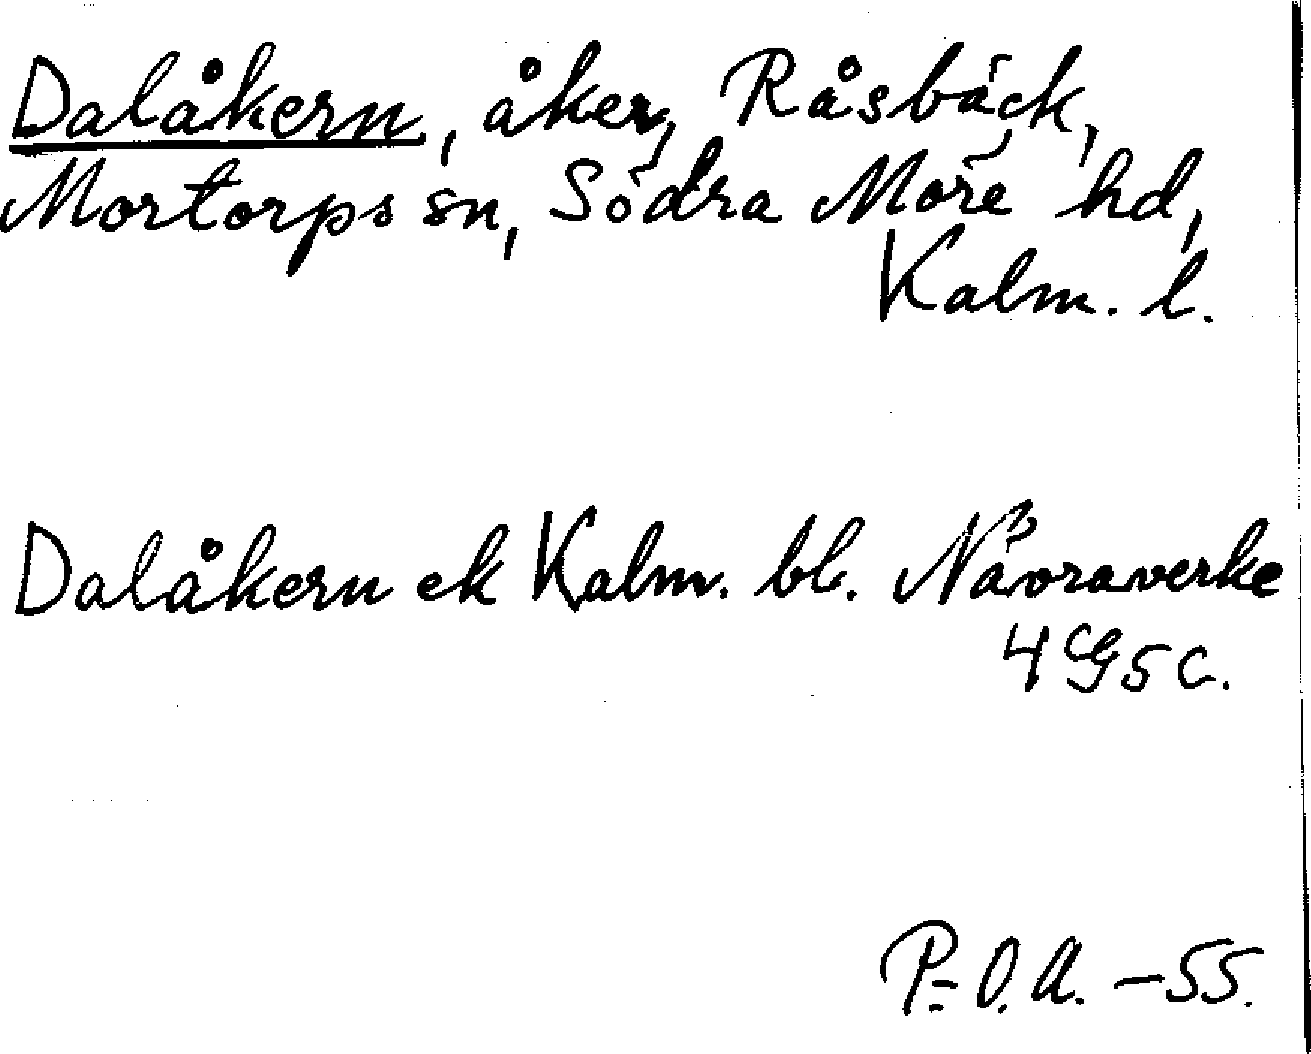 Dalåkern, åker, Råsbäck,
Mortorps sn, Södra Möre hd,
Kalm. l.
Dalåkern ek Kalm. bl. Nävraverke
4 G 5 c.
P.-O. A. -55.